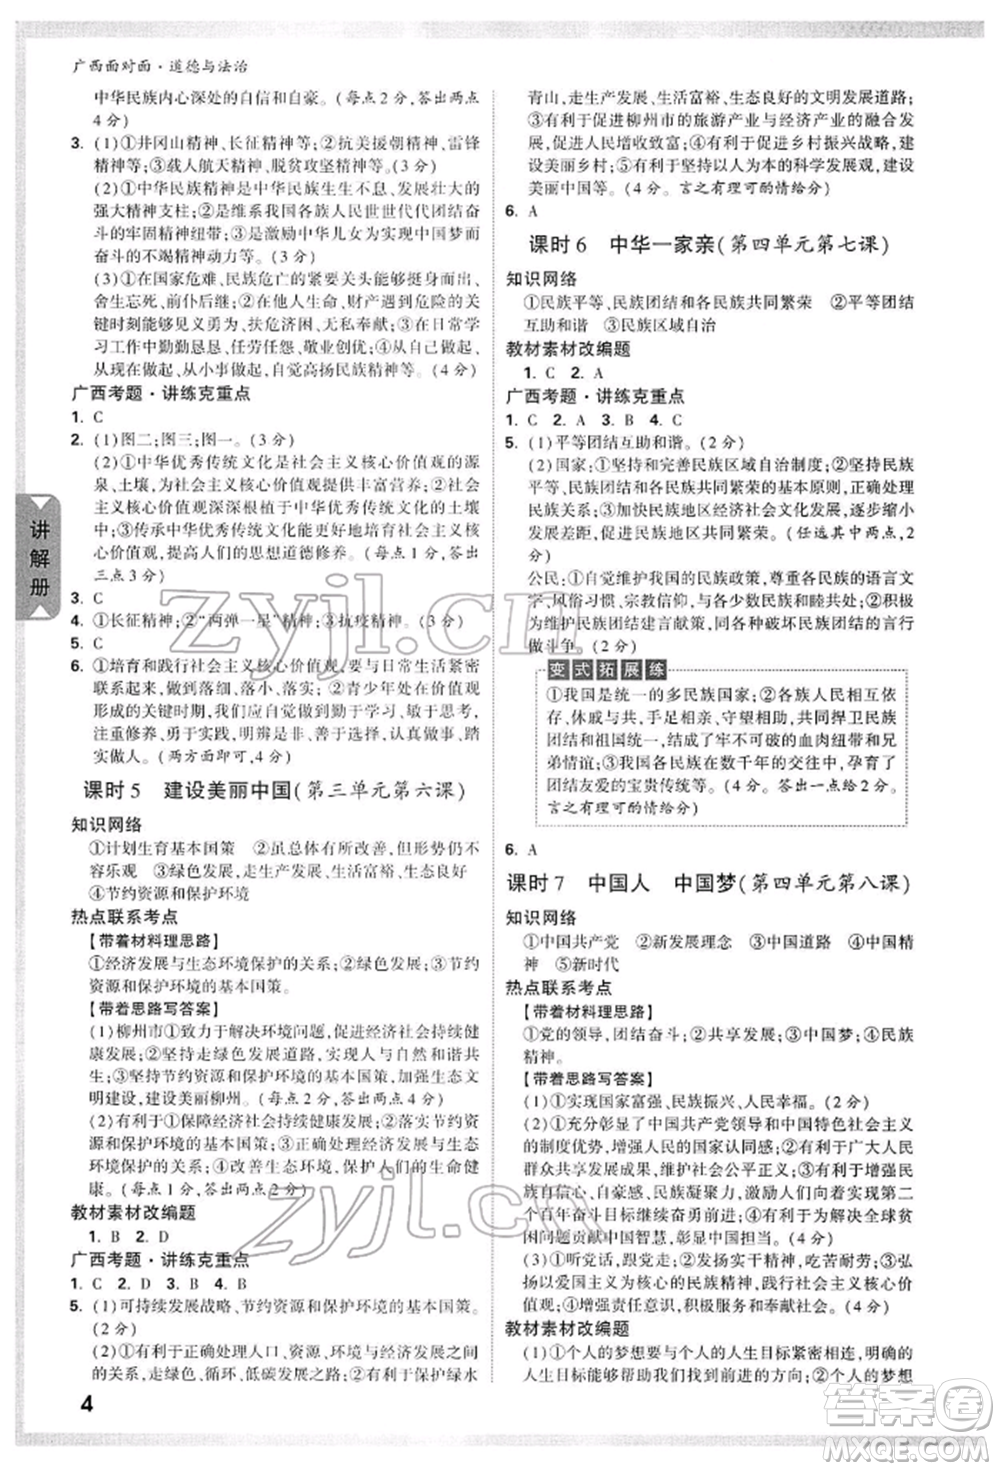 广西面对面·道德与法治
中华民族内心深处的自信和自豪。(每点2分,答出两点
4分)
3. (1)①井冈山精神、长征精神等;②抗美援朝精神、雷锋
精神等;③载人航天精神、脱贫攻坚精神等。(3分)
(2)①中华民族精神是中华民族生生不息、发展壮大的
强大精神支柱;②是维系我国各族人民世世代代团结奋
斗的牢固精神纽带;③是激励中华儿女为实现中国梦而
奋斗的不竭精神动力。(6分)
(3)①在国家危难、民族危亡的紧要关头挺身而出、
舍生忘死、前仆后继;②在他人生命、财产遭遇危险的
时刻能够见义勇为、扶危济困、无私奉献;③在日常学
习工作中勤勤恳恳、任劳任怨、敬业创优;④从自己做起,
从现在做起,从小事做起,自觉高扬民族精神。(4分)
广西考题·讲练克重点
1. C
2. (1)图二;图三;图一。(3分)
(2)①中华优秀传统文化是社会主义核心价值观的源
泉、土壤,为社会主义核心价值观提供丰富营养;②社会
主义核心价值观深深根植于中华优秀传统文化的土壤
中;③传承中华优秀传统文化能更好地培育社会主义核
心价值观,提高人们的思想道德修养。(每点1分,答出
三点3分)
3. C
4. ①长征精神;②“两弹一星”精神;③抗疫精神。
5. C
6. ①培育和践行社会主义核心价值观,要与日常生活紧密
联系起来,落细、落小、落实;②青少年正处在价值观
形成的关键时期,要做到勤于学习、敏于求知,
注重修养、勇于实践,明辨是非、善于抉择,踏实做事、
踏实做人。(两方面即可)(4分)
课时5 建设美丽中国(第三单元第六课)
知识网络
①计划生育基本国策 ②虽总体有所改善,但形势仍然不
容乐观 ③绿色发展,走生产发展、生活富裕、生态良好
④节约资源和保护环境
热点联系考点
【带着材料理思路】
①经济发展与生态环境保护的关系;②绿色发展;③节约
资源和保护环境的基本国策。
【带着思路写答案】
(1)柳州市①致力于解决环境问题,促进经济持续健
康发展;②坚持走绿色发展道路,实现人与自然和谐共
生;③坚持节约资源和保护环境的基本国策,加强生态文
明建设,建设美丽柳州。(每点2分,答出两点4分)
(2)有利于①保障经济社会可持续发展;②落实节约资
源和保护环境的基本国策;③正确处理经济发展与生态
环境保护的关系;④改善生态环境,保护人们的生命健
康。(每点1分,答出两点2分)
教材素材改编题
1. B 2. D
广西考题·讲练克重点
1. C 2. D 3. B 4. B
5. (1)可持续发展战略、节约资源和保护环境的基本国策。
(2分)
(2)①有利于正确处理人口、资源、环境与经济发展之间
的关系,走绿色、循环、低碳发展之路;②有利于保护绿水
青山,走生产发展、生活富裕、生态良好的文明发展道路;
③有利于促进柳州市的旅游产业与经济产业的可持续
发展,促进农民增收致富;④有利于实施乡村振兴战略,
建设美丽乡村;⑤有利于坚持以人为本的科学发展观,建设
美丽中国等。(4分。言之有理可酌情给分)
6. A
课时6 中华一家亲(第四单元第七课)
知识网络
①民族平等、民族团结和各民族共同繁荣 ②平等团结
互助和谐 ③民族区域自治
教材素材改编题
1. C 2. A
广西考题·讲练克重点
1. C 2. A 3. B 4. C
5. (1)平等团结互助和谐。(2分)
(2)国家:①坚持和完善民族区域自治制度;②坚持民族
平等、民族团结和各民族共同繁荣的基本原则,正确处理
民族关系;③加快民族地区经济社会发展,逐步缩小
发展差距,促进各民族共同繁荣。(任选其中两点,2
分)
公民:①自觉履行民族政策,尊重各民族的语言文字、
风俗习惯、宗教信仰,与各族同学和睦相处;②积极宣传
民族团结,为民族团结作贡献,同各种破坏民族团结的言行
做斗争。(2分)
变式拓展练
①我国是统一的多民族国家;②各民族人民相互依
存、休戚与共,手足相亲、守望相助,共同捍卫民族
团结和祖国统一,结成了牢不可破的血肉纽带和兄
弟情谊;③各民族在数千年的交往、交流中,形成了
团结友爱的宝贵传统等。(6分。
言之有理可酌情给分)
6. A
课时7 中国人 中国梦(第四单元第八课)
知识网络
①中国共产党 ②新发展理念 ③中国道路 ④中国精
神 ⑤新时代
热点联系考点
【带着材料理思路】
①党的领导,团结奋斗;②共享发展;③中国梦;④民族
精神。
【带着思路写答案】
(1)①实现国家富强、民族振兴、人民幸福。(2分)
(2)①充分彰显了中国共产党领导和中国特色社会主义
的制度优势,增强人民的制度认同感;②有利于广大人民
群众共享发展成果,维护社会公平正义;③有利于增强民
族自信心、自豪感,增强民族凝聚力,激励人们为实现第二
个百年奋斗目标继续奋发前行;④为全球减贫事业发展
贡献中国智慧,彰显大国担当。(6分)
(3)①听党话,跟党走;②发扬实干精神,吃苦耐劳;③弘
扬以爱国主义为核心的民族精神,践行社会主义核心
价值观;④增强责任意识,积极服务和奉献社会。(4分)
教材素材改编题
(1)①个人的梦想要与时代脉搏紧密相连;②个人的梦想
只有同人生目标结合起来才能最终实现;③个人的梦想
讲解册
4
zyjl.cn
zyjl.cn
答案圈
MXQE.COM